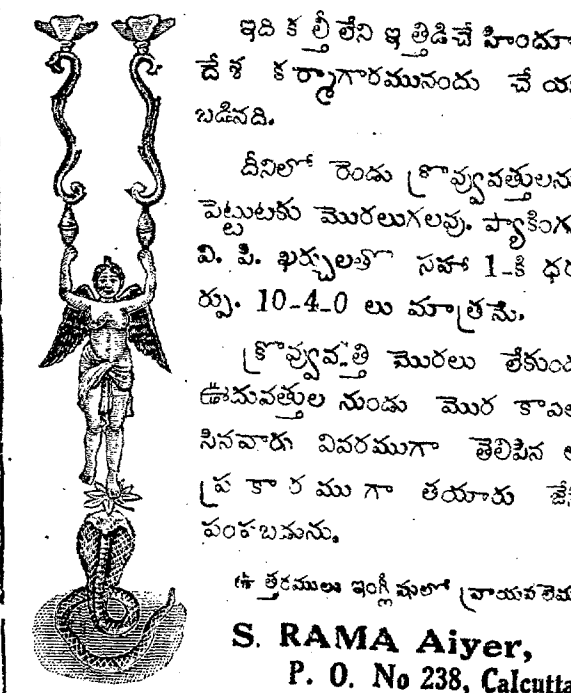 ఇది కల్తీ లేని ఇత్తిడిచే హిందూ
దేశ కర్మాగారమునందు చేయ
బడినది.
దీనిలో రెండు క్రొవ్వువత్తులను
పెట్టుటకు మొరలుగలవు. ప్యాకింగు
వి. పి. ఖర్చులతో సహా 1-కి ధర
ర్పు. 10-4-0 లు మాత్రమే.
క్రొవ్వువత్తి మొరలు లేకుండ
ఊదువత్తుల నుండు మొర కావల
సినవారు వివరముగా తెలిపిన
ప్రకారముగా తయారు జేసి
పంపబడును.
ఉత్తరములు ఇంగ్లీషులో వ్రాయవలెను
S. RAMA Aiyer,
P. O. No 238, Calcutta